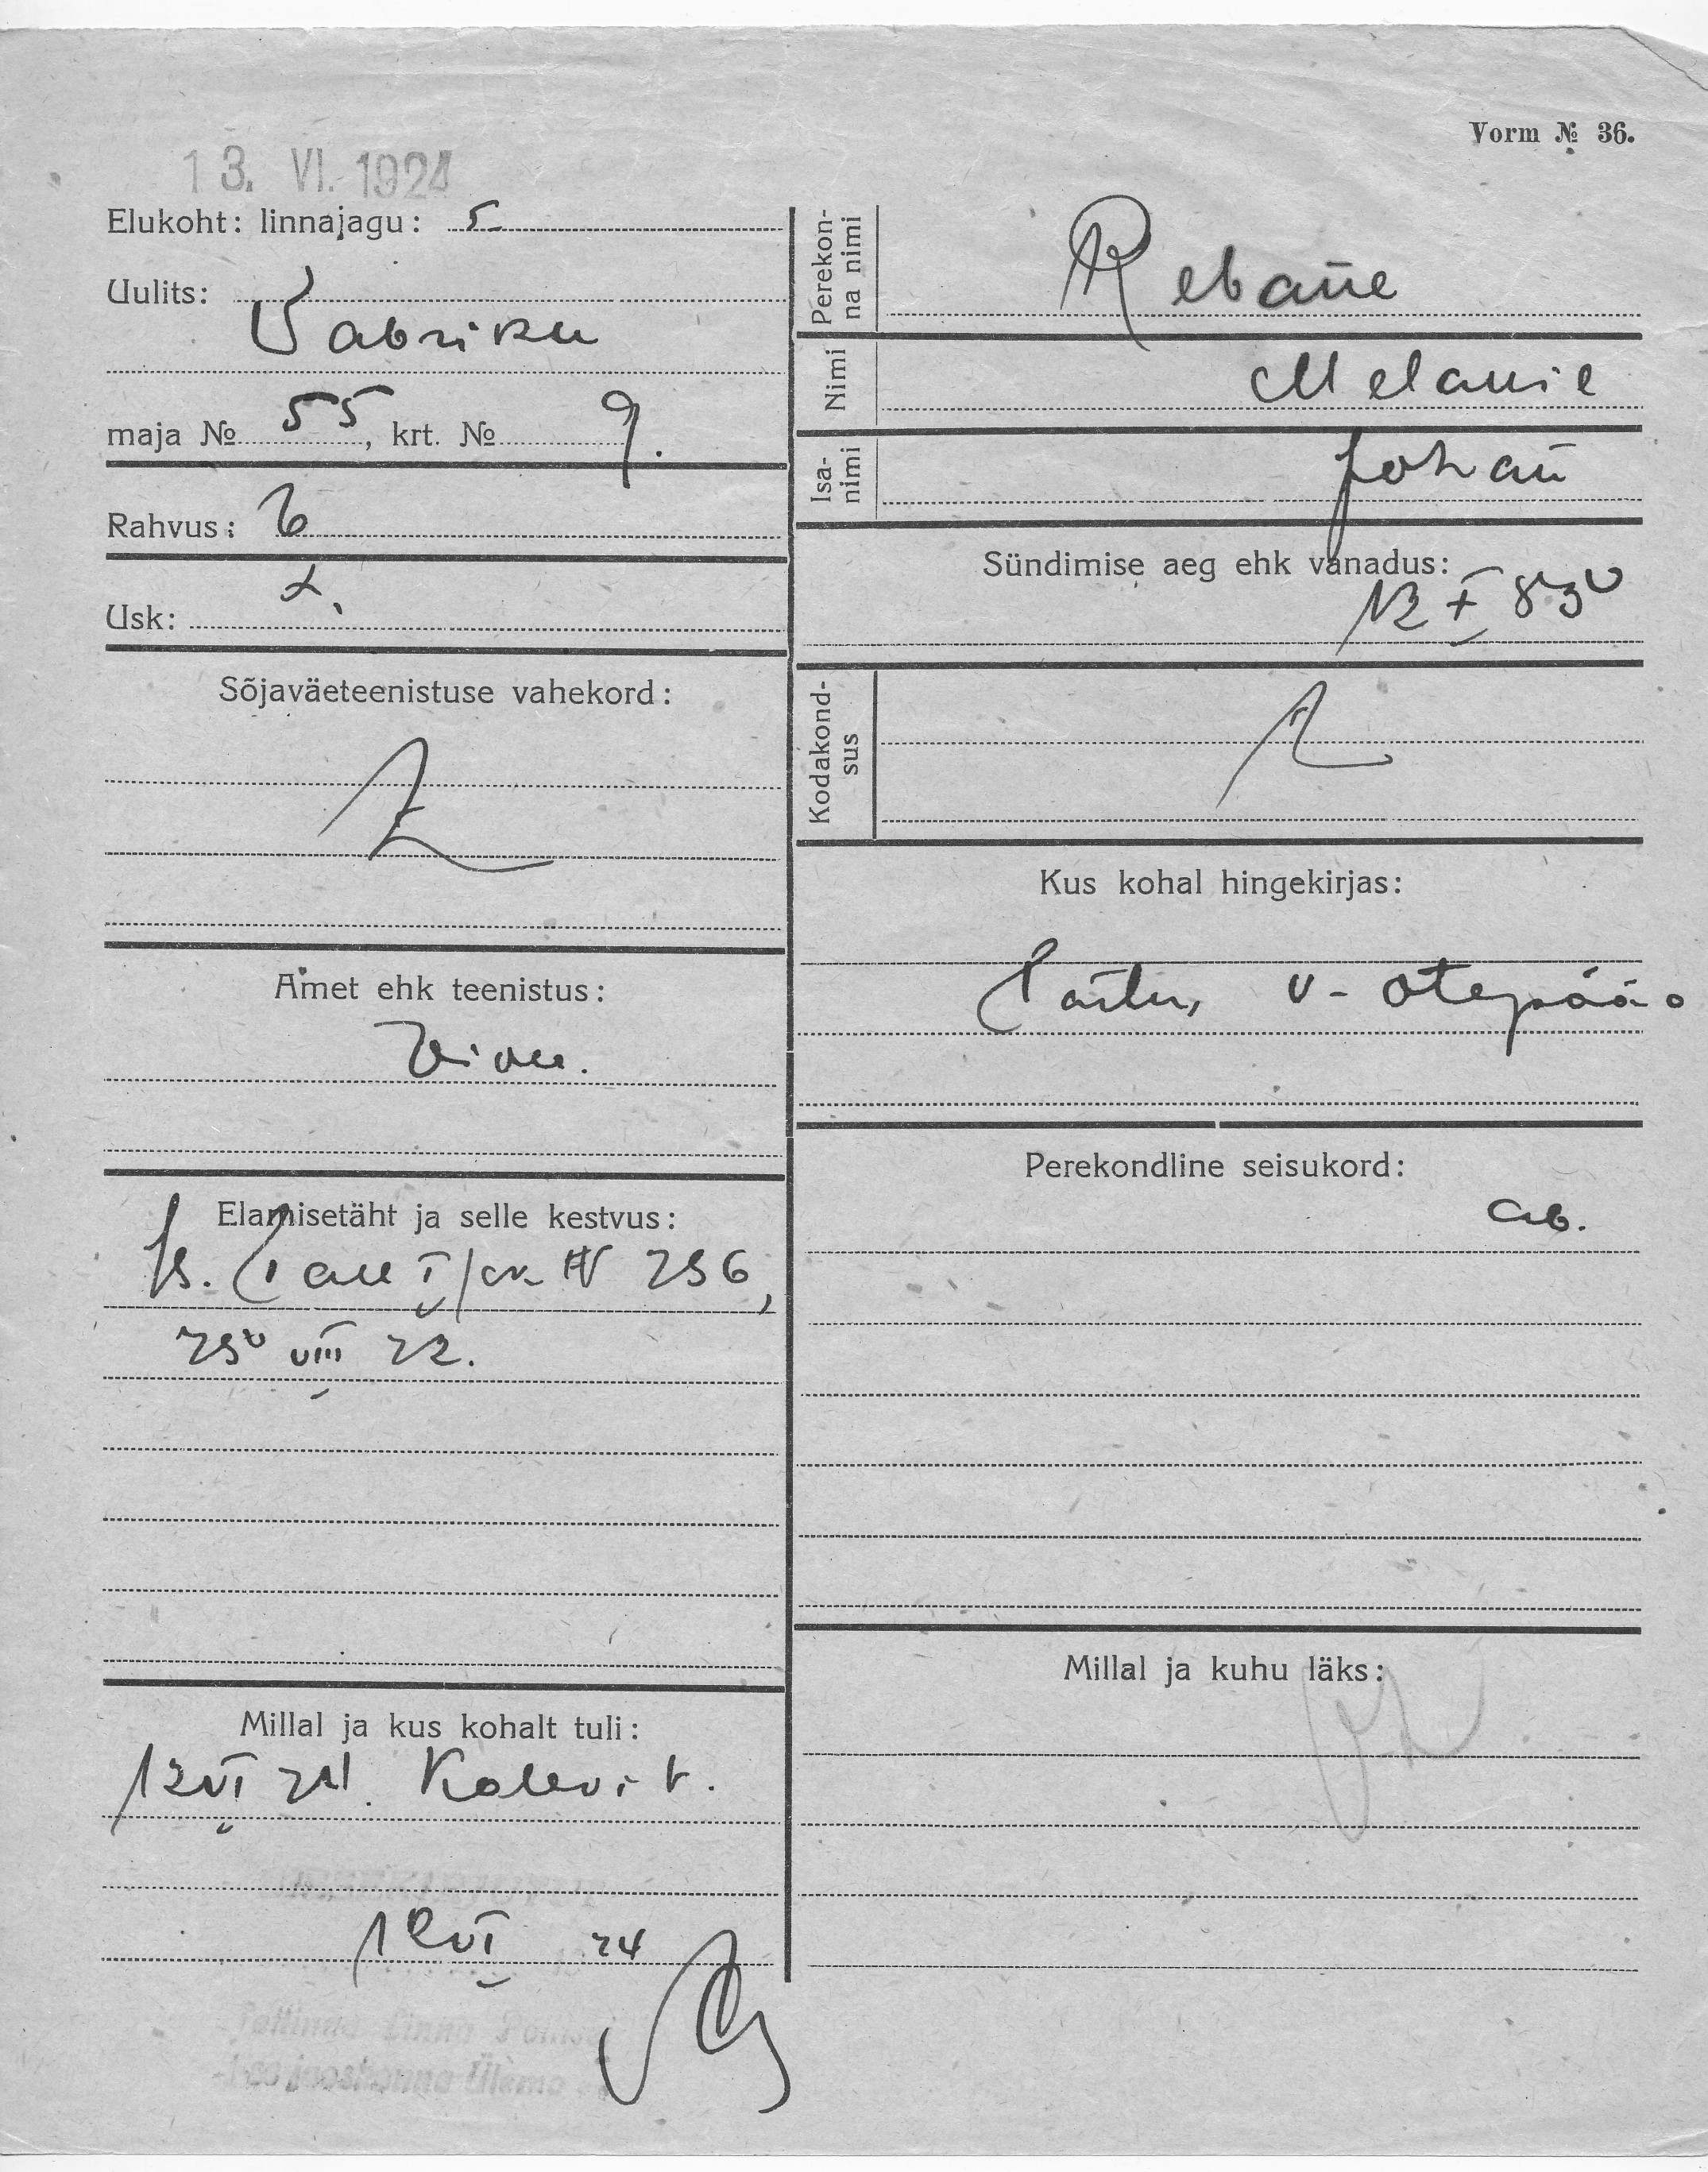 Vorm № 36.
13. VI. 1924
Elukoht: linnajagu: 5.
Uulits:
Vabriku
maja № 55, krt. № 9.
Rahvus: E
Usk: L.
Sõjaväeteenistuse vahekord:
Amet ehk teenistus:
Elamisetäht ja selle kestvus:
№ 256,
25 VIII 22.
Millal ja kus kohalt tuli:
12 VI 24. Kalevi t.
12 VI 24
Tallinna Linna Politsei
jaoskonna Ülema
Perekonna nimi
Rebane
Nimi
Melanie
Isanimi
Johan
Sündimise aeg ehk vanadus:
12 X 85
Kodakondsus
Kus kohal hingekirjas:
Tartu, v- Otepää
Perekondline seisukord:
ab.
Millal ja kuhu läks: